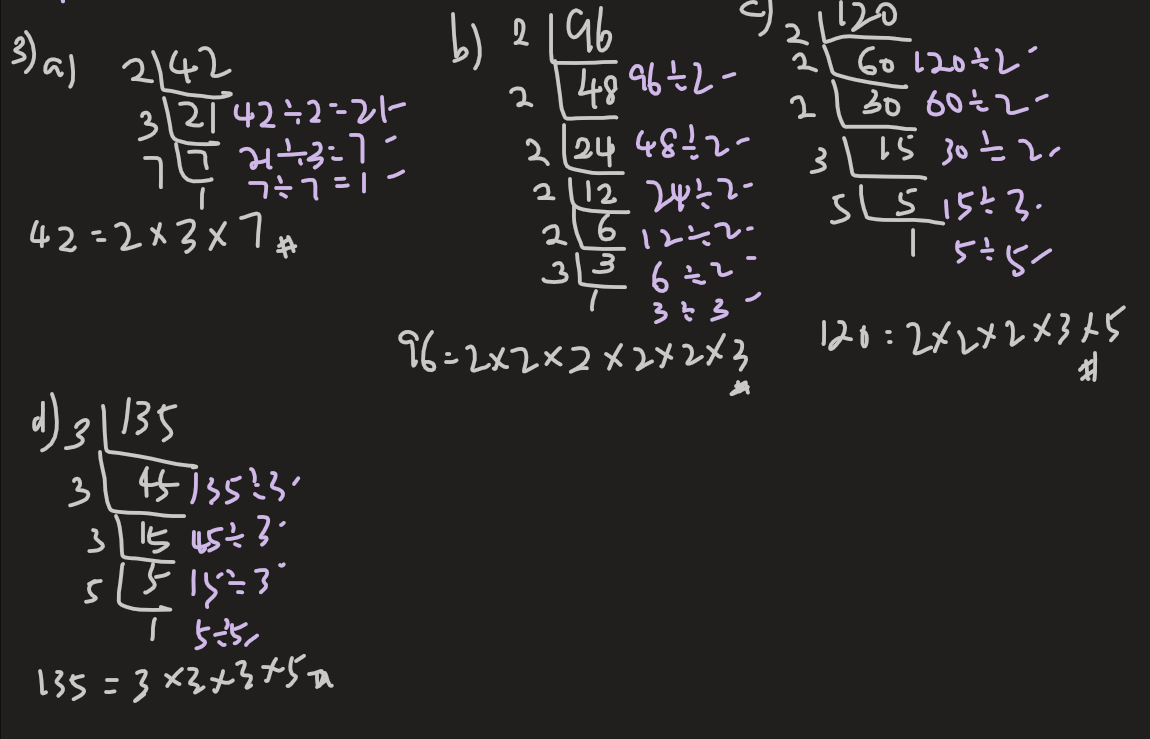 3) a) 2 42
3 21 42÷2=21
7 7 21÷3=7
1 7÷7=1
42=2×3×7 #
b) 2 96
2 48 96÷2
2 24 48÷2
2 12 24÷2
2 6 12÷2
3 3 6÷2
1 3÷3
96=2×2×2×2×2×3 #
c) 2 120
2 60 120÷2
2 30 60÷2
3 15 30÷2
5 5 15÷3
1 5÷5
120=2×2×2×3×5 #
d) 3 135
3 45 135÷3
3 15 45÷3
5 5 15÷3
1 5÷5
135=3×3×3×5 #